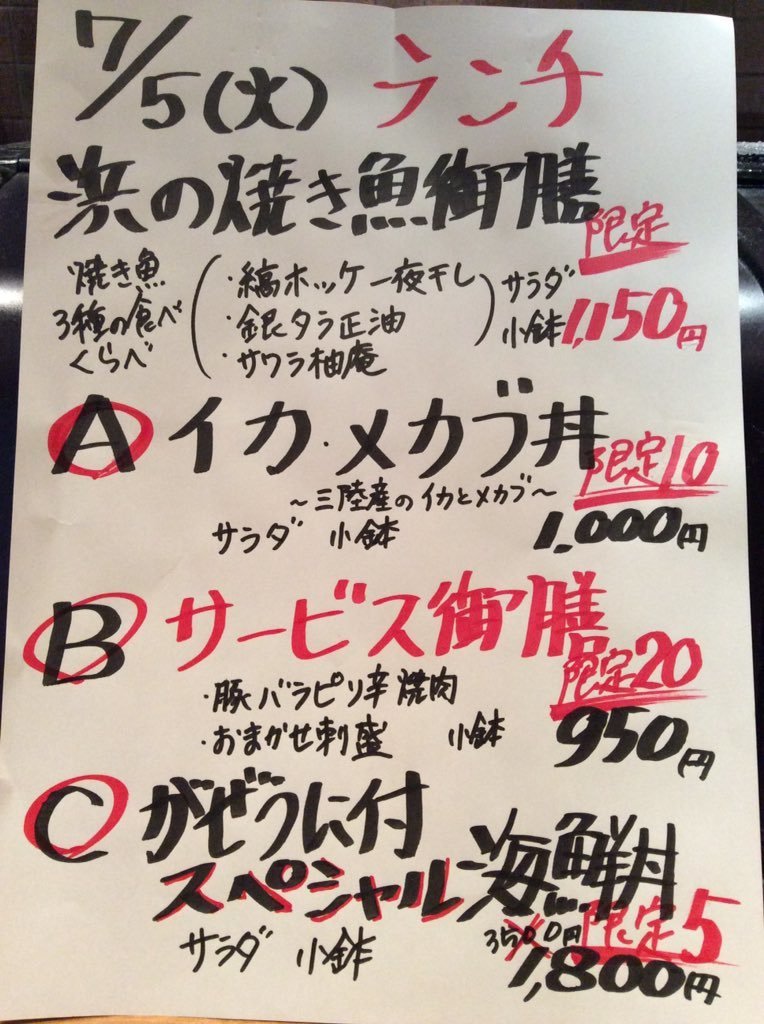 7/5(火) ランチ
浜の焼き魚御膳
限定
焼き魚
3種の食べ
くらべ
・縞ホッケ一夜干し
・銀タラ正油
・サワラ柚庵
サラダ
小鉢
1,150円
A イカ・メカブ丼
限定10
～三陸産のイカとメカブ～
サラダ 小鉢
1,000円
B サービス御膳
限定20
・豚バラピリ辛焼肉
・おまかせ刺盛 小鉢
950円
C がぜうに付
スペシャル海鮮丼
限定5
サラダ 小鉢
3500円
1,800円